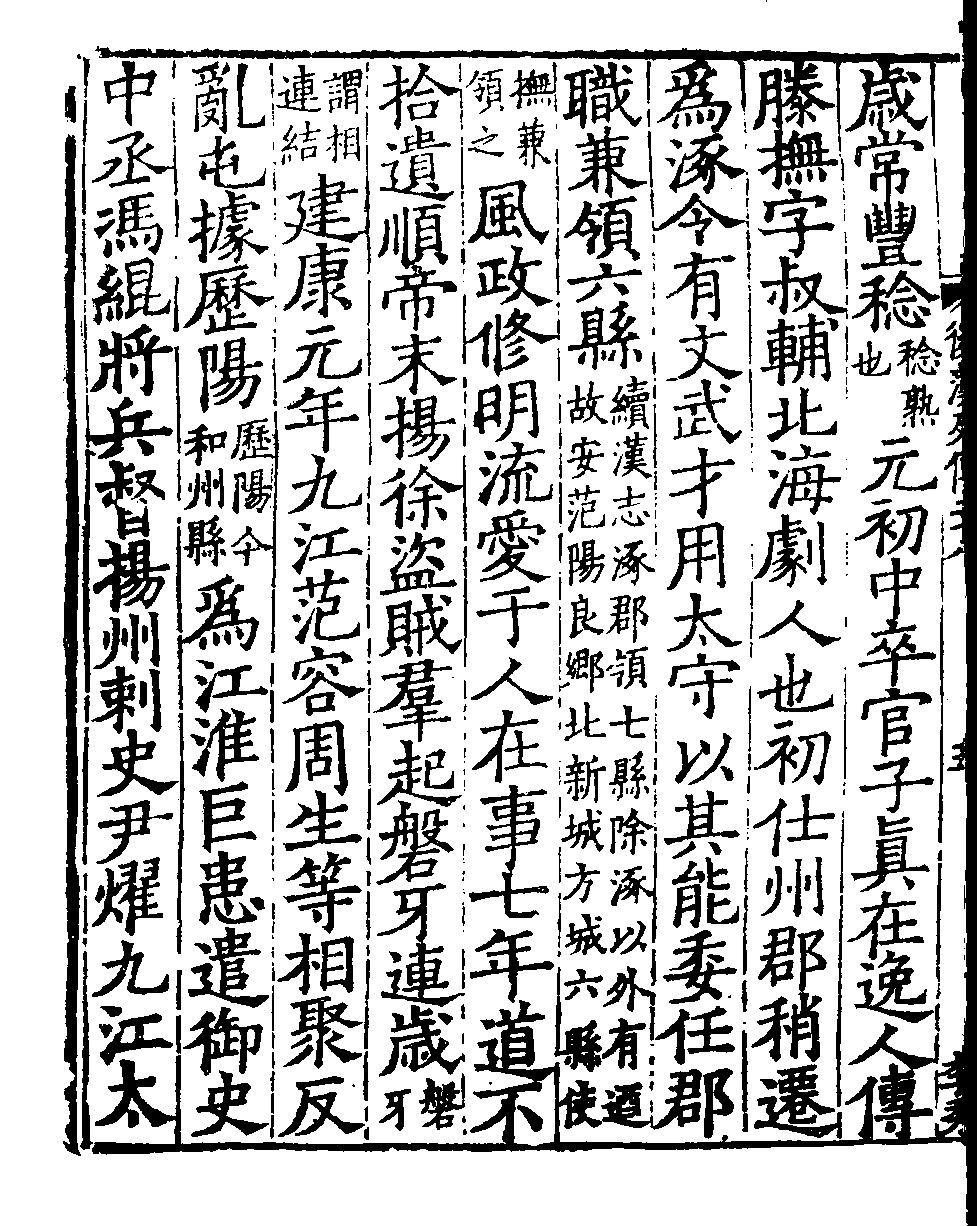 歳常豐稔稔熟也元初中卒官子眞在逸人傳
滕撫字叔輔北海劇人也初仕州郡稍遷
爲涿令有文武才用太守以其能委任郡
職兼領六縣續漢志涿郡領七縣除涿以外有遒故安范陽良鄉北新城方城六縣使
撫兼領之風政修明流愛于人在事七年道不
拾遺順帝末揚徐盜賊羣起磐牙連歳磐牙
謂相連結建康元年九江范容周生等相聚反
亂屯據歷陽歷陽今和州縣爲江淮巨患遣御史
中丞馮緄將兵督揚州刺史尹燿九江太